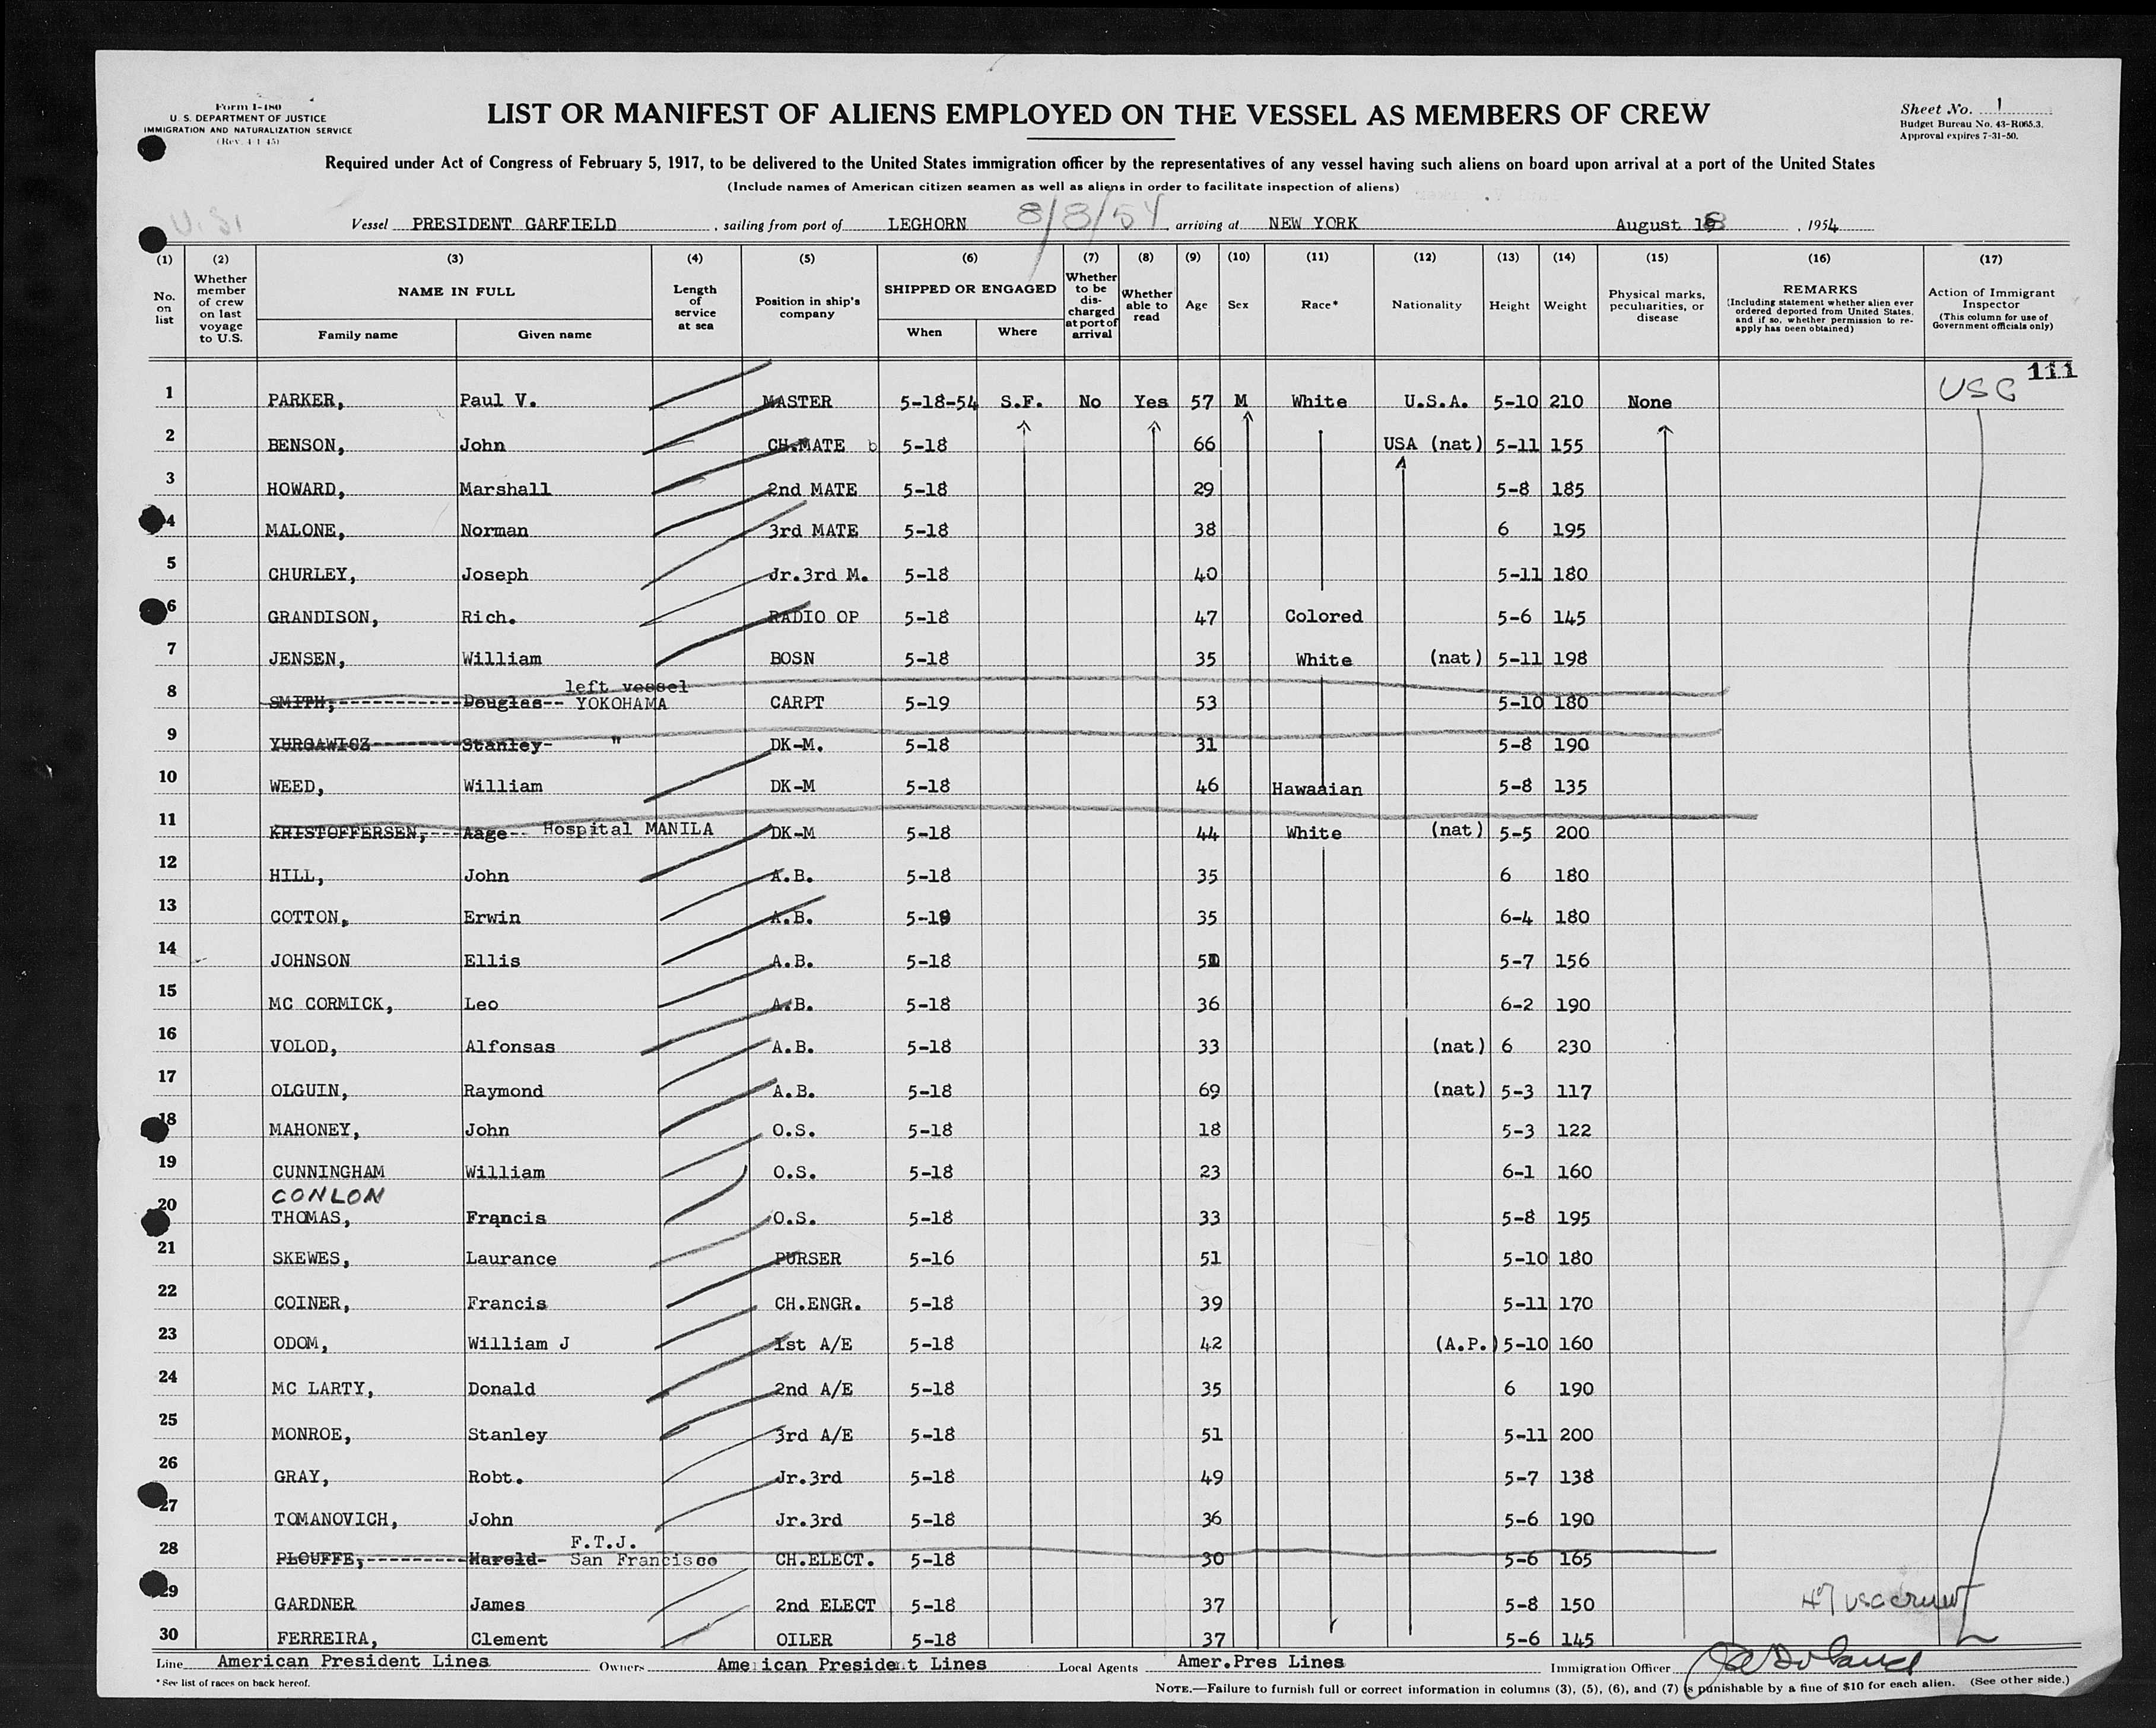 Form I-480
U. S. DEPARTMENT OF JUSTICE
IMMIGRATION AND NATURALIZATION SERVICE
(Rev. 4-1-45)
LIST OR MANIFEST OF ALIENS EMPLOYED ON THE VESSEL AS MEMBERS OF CREW
Sheet No. 1
Budget Bureau No. 43-R065.3.
Approval expires 7-31-50.
Required under Act of Congress of February 5, 1917, to be delivered to the United States immigration officer by the representatives of any vessel having such aliens on board upon arrival at a port of the United States
(Include names of American citizen seamen as well as aliens in order to facilitate inspection of aliens)
8/8/54
Vessel PRESIDENT GARFIELD, sailing from port of LEGHORN, arriving at NEW YORK August 18, 1954
(1) (2) (3) (4) (5) (6) (7) (8) (9) (10) (11) (12) (13) (14) (15) (16) (17)
No. on list
Whether member of crew on last voyage to U.S.
NAME IN FULL
Family name Given name
Length of service at sea
Position in ship's company
SHIPPED OR ENGAGED
When Where
Whether to be discharged at port of arrival
Whether able to read
Age
Sex
Race*
Nationality
Height
Weight
Physical marks, peculiarities, or disease
REMARKS
(Including statement whether alien ever ordered deported from United States, and if so, whether permission to reapply has been obtained)
Action of Immigrant Inspector
(This column for use of Government officials only)
111
1 PARKER, Paul V. MASTER 5-18-54 S.F. No Yes 57 M White U.S.A. 5-10 210 None USC
2 BENSON, John CH.MATE b 5-18 66 USA (nat) 5-11 155
3 HOWARD, Marshall 2nd MATE 5-18 29 5-8 185
4 MALONE, Norman 3rd MATE 5-18 38 6 195
5 CHURLEY, Joseph Jr.3rd M. 5-18 40 5-11 180
6 GRANDISON, Rich. RADIO OP 5-18 47 Colored 5-6 145
7 JENSEN, William BOSN 5-18 35 White (nat) 5-11 198
left vessel
8 SMITH, Douglas YOKOHAMA CARPT 5-19 53 5-10 180
9 YURGAWICZ Stanley " DK-M. 5-18 31 5-8 190
10 WEED, William DK-M 5-18 46 Hawaaian 5-8 135
11 KRISTOFFERSEN, Aage Hospital MANILA DK-M 5-18 44 White (nat) 5-5 200
12 HILL, John A.B. 5-18 35 6 180
13 COTTON, Erwin A.B. 5-19 35 6-4 180
14 JOHNSON Ellis A.B. 5-18 51 5-7 156
15 MC CORMICK, Leo A.B. 5-18 36 6-2 190
16 VOLOD, Alfonsas A.B. 5-18 33 (nat) 6 230
17 OLGUIN, Raymond A.B. 5-18 69 (nat) 5-3 117
18 MAHONEY, John O.S. 5-18 18 5-3 122
19 CUNNINGHAM William O.S. 5-18 23 6-1 160
CONLON
20 THOMAS, Francis O.S. 5-18 33 5-8 195
21 SKEWES, Laurance PURSER 5-16 51 5-10 180
22 COINER, Francis CH.ENGR. 5-18 39 5-11 170
23 ODOM, William J 1st A/E 5-18 42 (A.P.) 5-10 160
24 MC LARTY, Donald 2nd A/E 5-18 35 6 190
25 MONROE, Stanley 3rd A/E 5-18 51 5-11 200
26 GRAY, Robt. Jr.3rd 5-18 49 5-7 138
27 TOMANOVICH, John Jr.3rd 5-18 36 5-6 190
F.T.J.
28 PLOUFFE, Harold San Francisco CH.ELECT. 5-18 30 5-6 165
29 GARDNER James 2nd ELECT 5-18 37 5-8 150
30 FERREIRA, Clement OILER 5-18 37 5-6 145
Line American President Lines Owners American President Lines Local Agents Amer.Pres Lines Immigration Officer
*See list of races on back hereof.
NOTE.—Failure to furnish full or correct information in columns (3), (5), (6), and (7) is punishable by a fine of $10 for each alien. (See other side.)